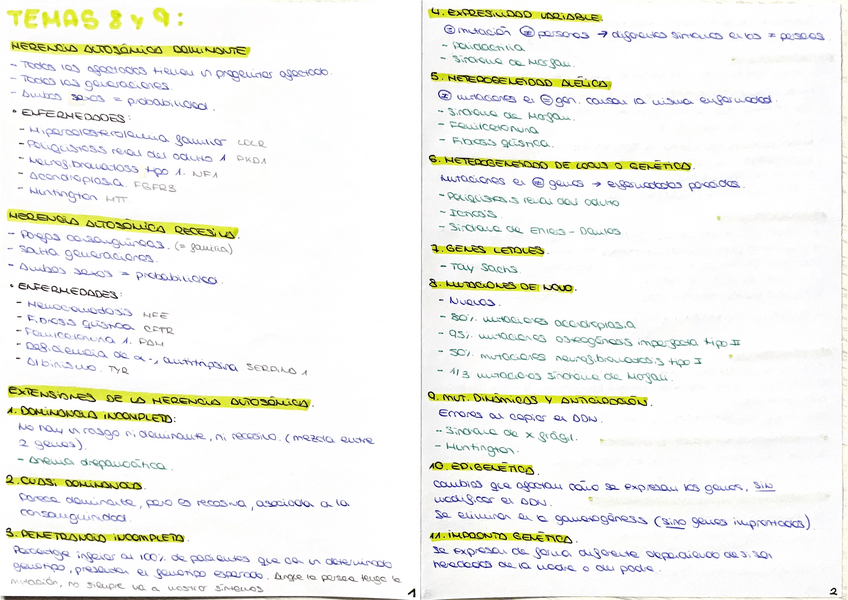 TEMAS 8 y 9:
HERENCIA AUTOSÓMICA DOMINANTE
- Todos los afectados tienen un progenitor afectado.
- Todas las generaciones.
- Ambos sexos = probabilidad.
• ENFERMEDADES:
- Hipercolesterolemia familiar LDLR
- Poliquistosis renal del adulto 1 PKD1
- Neurofibromatosis tipo 1. NF1
- Acondroplasia. FGFR3
- Huntington HTT
HERENCIA AUTOSÓMICA RECESIVA
- Parejas consanguíneas. (= familia)
- Salta generaciones.
- Ambos sexos = probabilidad.
• ENFERMEDADES:
- Hemocromatosis HFE
- Fibrosis quística CFTR
- Fenilcetonuria 1. PAH
- Deficiencia de α-1 antitripsina SERPINA 1
- Albinismo. TYR
EXTENSIONES DE LA HERENCIA AUTOSÓMICA.
1. DOMINANCIA INCOMPLETA:
No hay un rasgo ni dominante, ni recesivo. (mezcla entre
2 genes).
- Anemia drepanocítica.
2. CUASI DOMINANCIA
Parece dominante, pero es recesiva, asociada a la
consanguinidad.
3. PENETRANCIA INCOMPLETA.
Porcentaje inferior al 100% de pacientes que con un determinado
genotipo, presentan el fenotipo esperado. Aunque la persona tenga la
mutación, no siempre va a mostrar síntomas
1
4. EXPRESIVIDAD VARIABLE.
= mutación ≠ personas → diferentes síntomas en las = personas.
- Polidactilia.
- Síndrome de Marfan.
5. HETEROGENEIDAD ALÉLICA.
≠ mutaciones en = gen. causan la misma enfermedad.
- Síndrome de Marfan.
- Fenilcetonuria.
- Fibrosis quística.
6. HETEROGENEIDAD DE LOCUS O GENÉTICA.
Mutaciones en ≠ genes → enfermedades parecidas.
- Poliquistosis renal del adulto
- Ictiosis.
- Síndrome de Ehlers - Danlos
7. GENES LETALES.
- Tay Sachs.
8. MUTACIONES DE NOVO.
- Nuevas.
- 80% mutaciones acondroplasia
- 95% mutaciones osteogénesis imperfecta tipo II
- 50% mutaciones neurofibromatosis tipo I
- 1/3 mutaciones síndrome de Marfan.
9. MUT. DINÁMICAS Y ANTICIPACIÓN.
Errores al copiar el ADN.
- Síndrome de x frágil.
- Huntington.
10. EPIGENÉTICA.
Cambios que afectan cómo se expresan los genes, sin
modificar el ADN.
Se eliminan en la gametogénesis (sino genes improntados).
11. IMPRONTA GENÉTICA.
Se expresan de forma diferente dependiendo de si son
heredados de la madre o del padre.
2